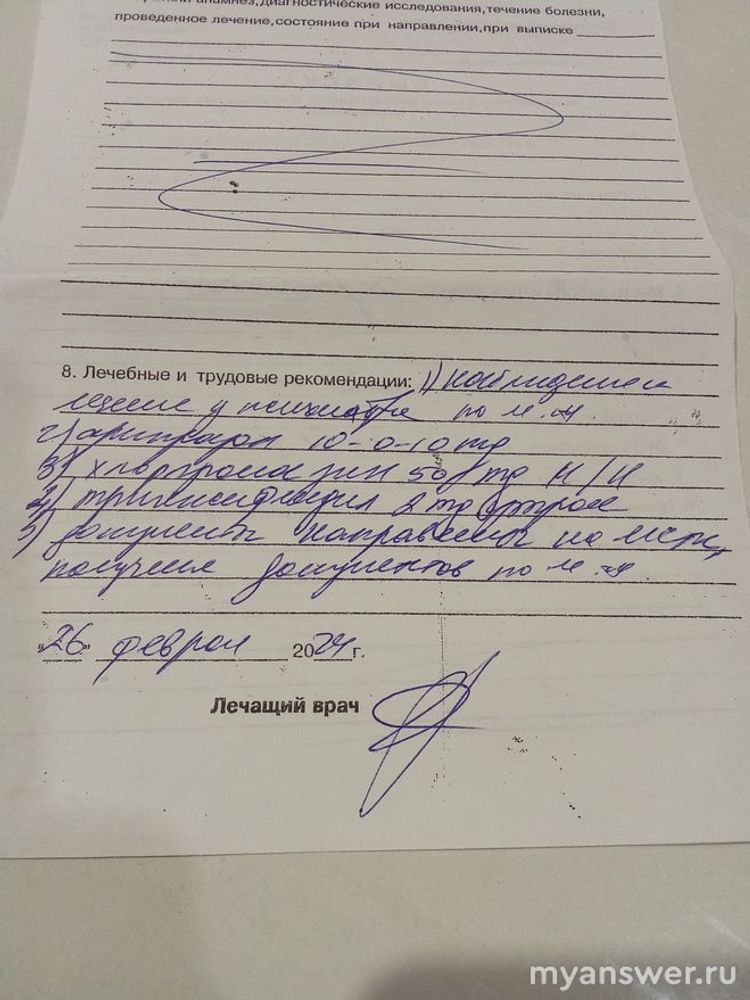 анамнез, диагностические исследования, течение болезни,
проведенное лечение, состояние при направлении, при выписке
8. Лечебные и трудовые рекомендации: 1) наблюдение и
лечение у психиатра по м.ж.
2) арипразол 10-0-10 mg
3) хлорпромазин 50 mg н/н
4) тригексифенидил 2 mg утром
5) документы направлены на МСЭК,
получение документов по м.ж.
"26" феврал 2024г.
Лечащий врач
myanswer.ru